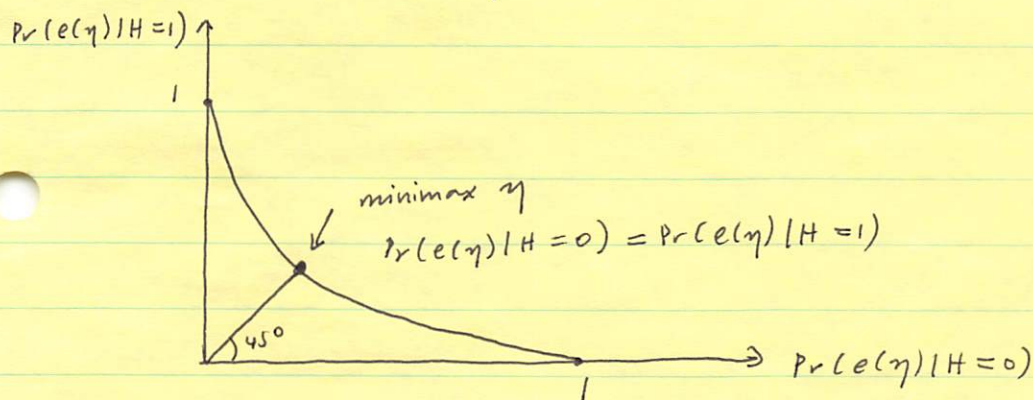 Pr(e(η)|H=1)
1
minimax η
Pr(e(η)|H=0) = Pr(e(η)|H=1)
45°
Pr(e(η)|H=0)
1